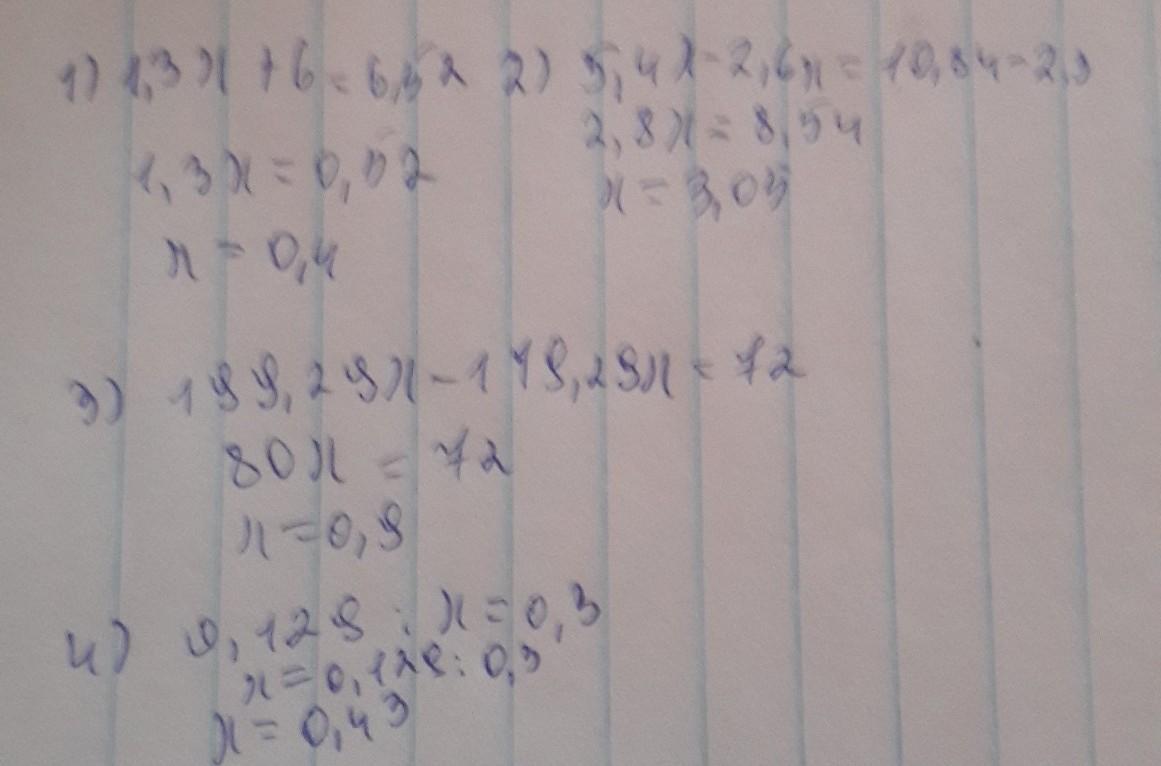 1) 1,3x + 6 = 6,52
1,3x = 0,52
x = 0,4
2) 5,4x - 2,6x = 10,84 - 2,3
2,8x = 8,54
x = 3,05
3) 199,29x - 119,29x = 72
80x = 72
x = 0,9
4) 0,129 : x = 0,3
x = 0,129 : 0,3
x = 0,43